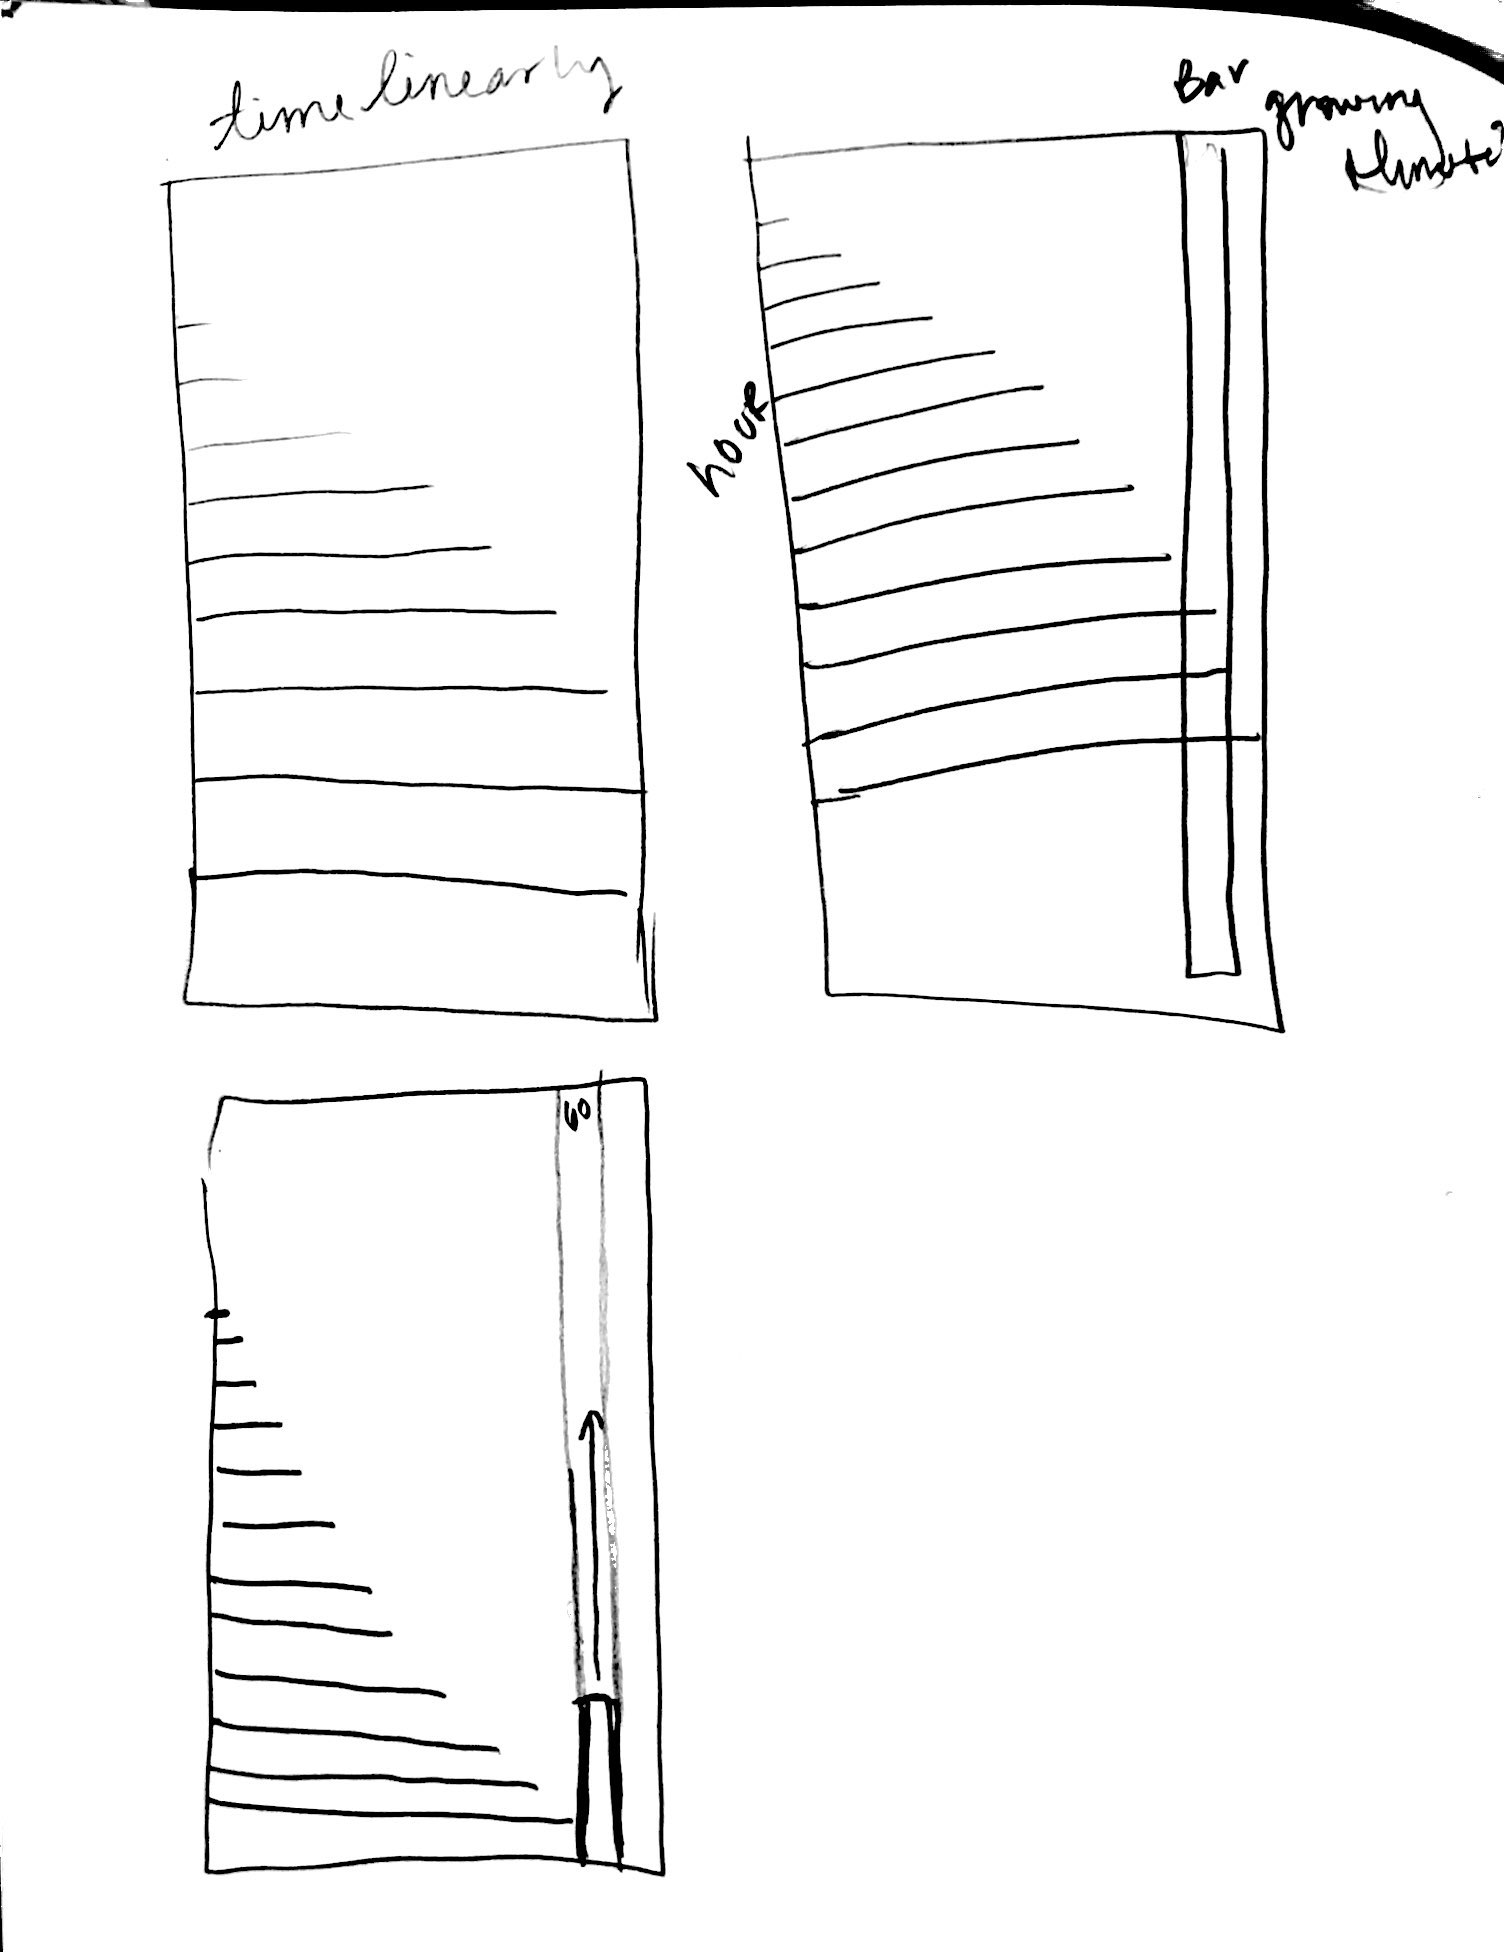 time linearly
Bar
growing
hour
60